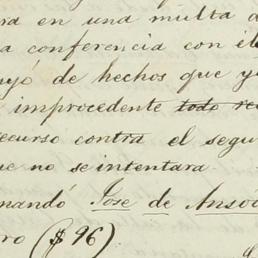 ra en una multa d
a conferencia con el
uyó de hechos que y
improcedente todo rec
recurso contra el segu
ue no se intentara.
mandó Jose de Anso
ro ($ 96)